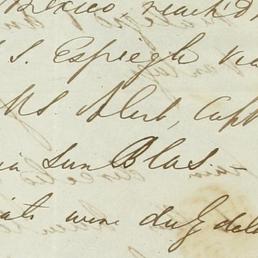 Mexico reach'd
S. Espiegle
Ms. Alert, Capt
San Blas. -
were duly del